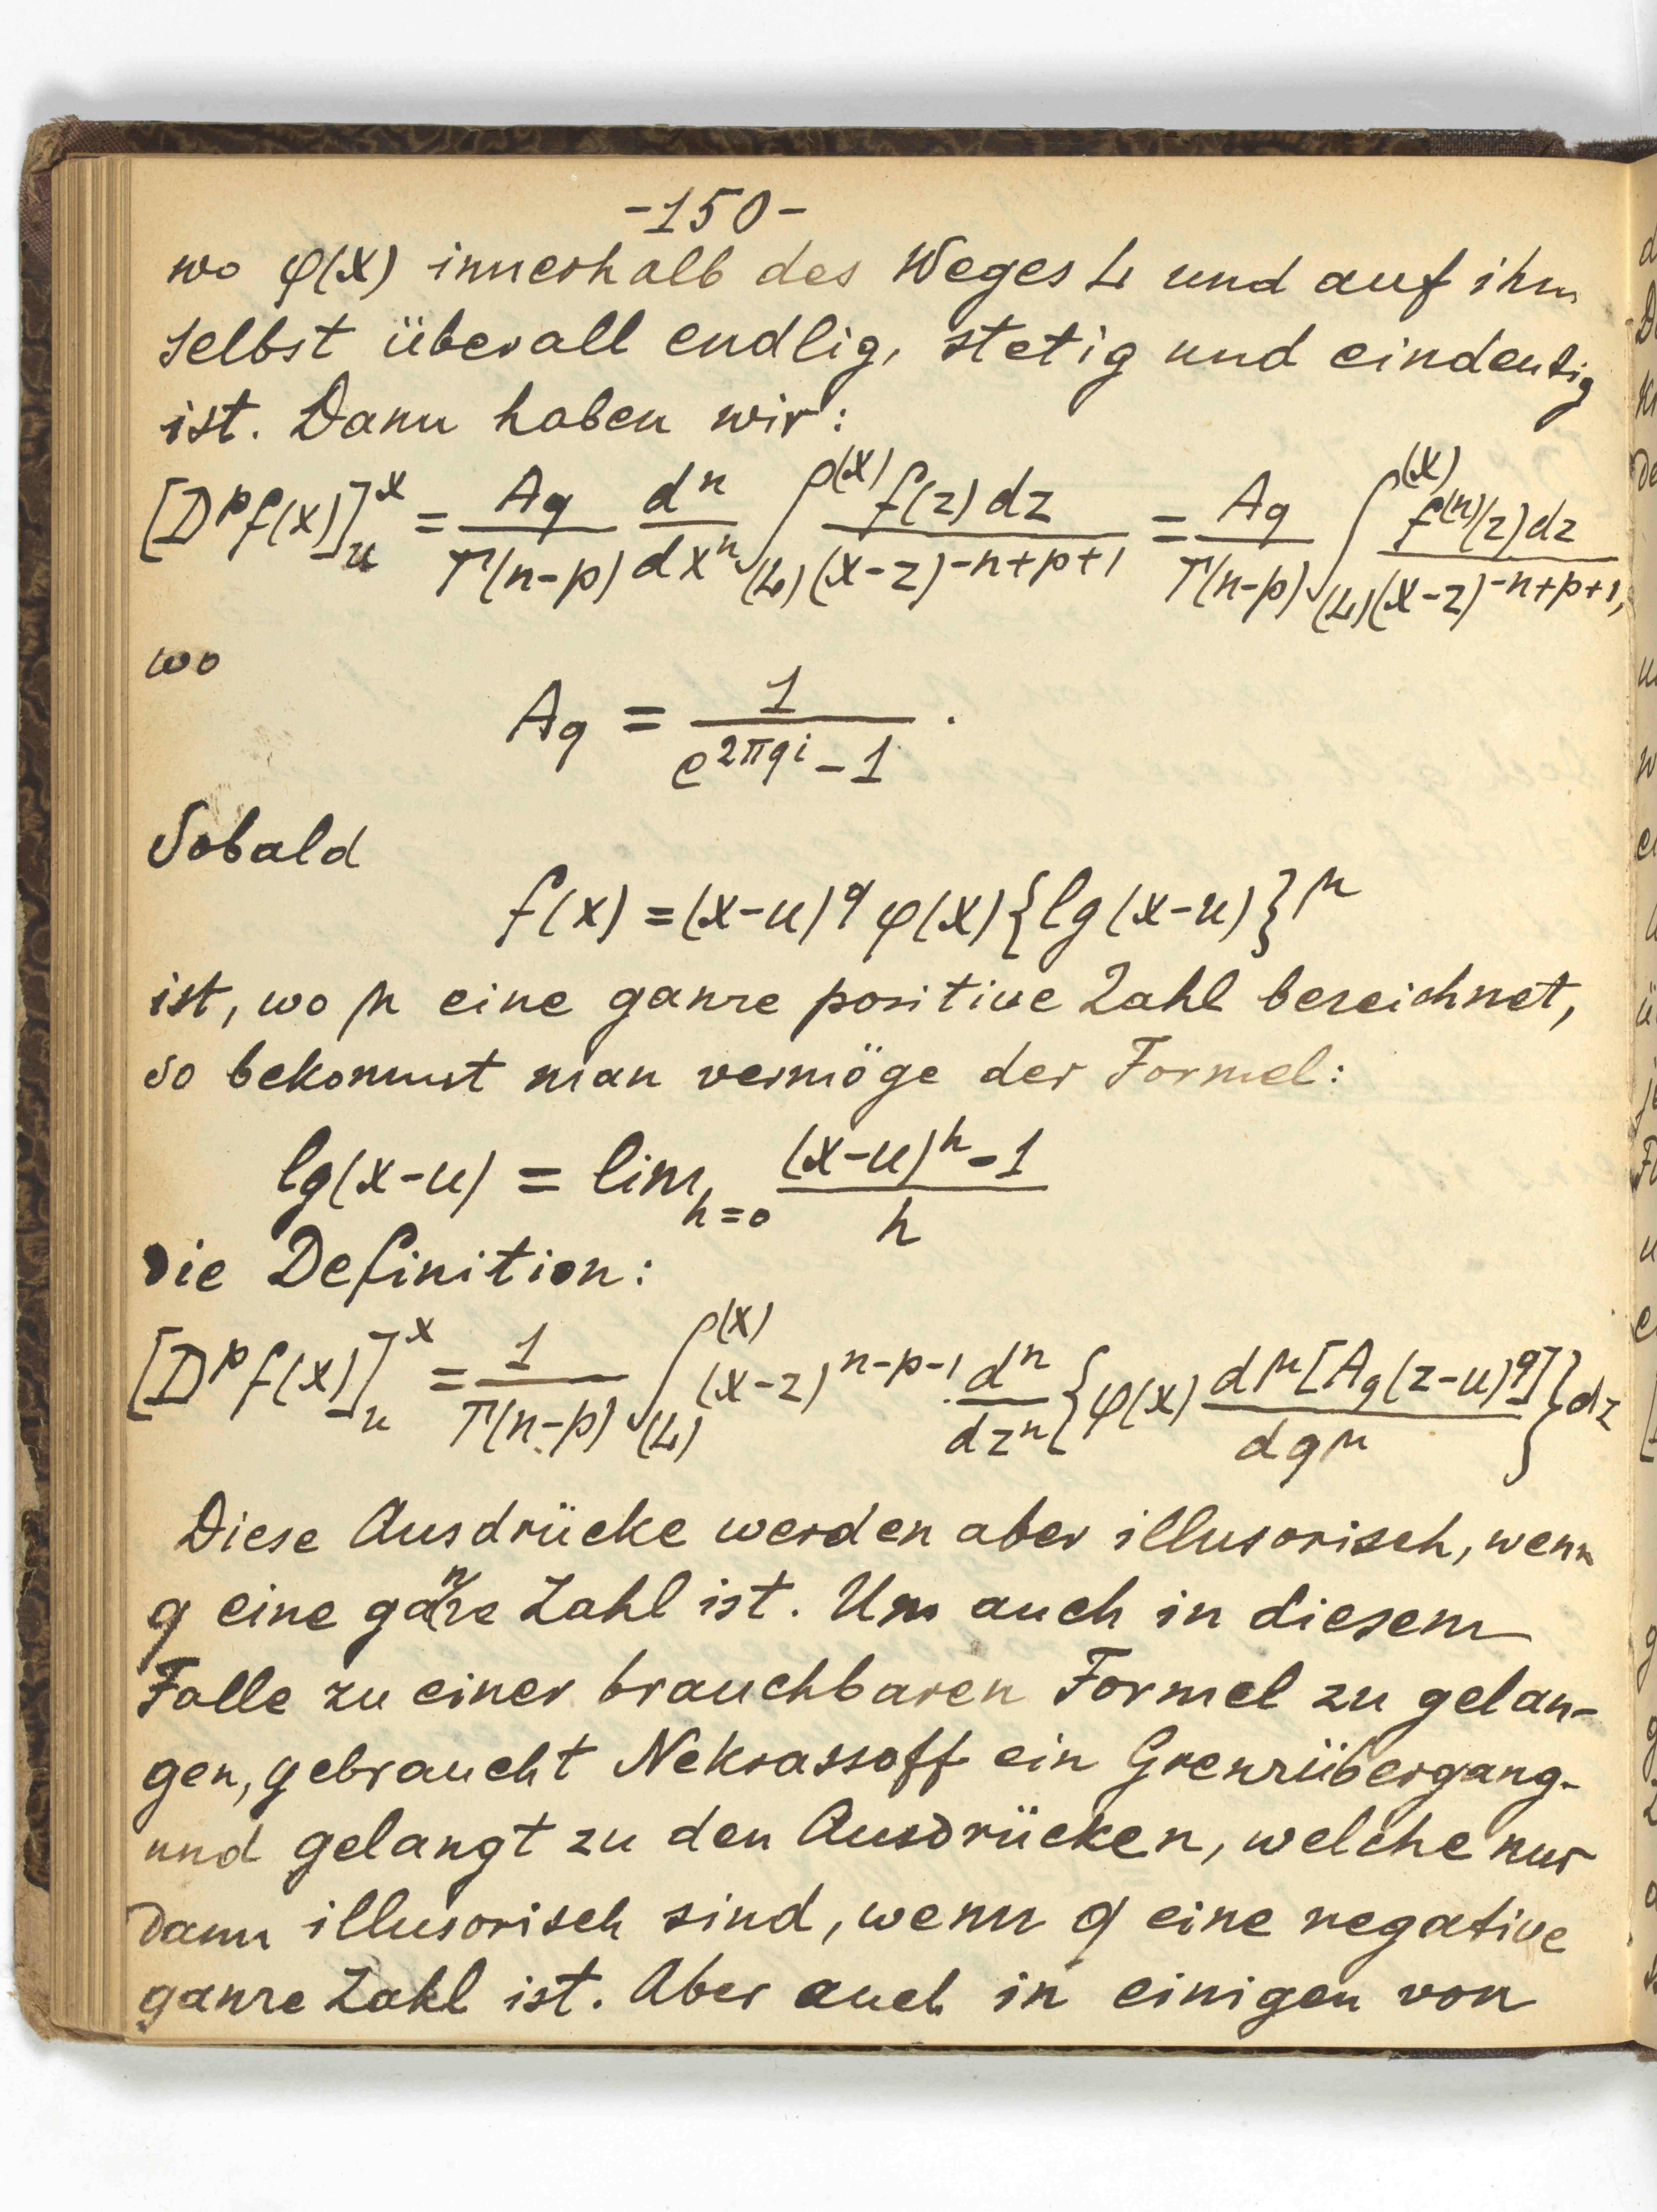 -150-
wo φ(x) innerhalb des Weges L und auf ihm
selbst überall endlig, stetig und eindeutig
ist. Dann haben wir:
[D^p f(x)]_u^x = A_q/Γ(n-p) d^n/dx^n ∫_(L)^(x) f(z)dz/(x-z)^{-n+p+1} = A_q/Γ(n-p) ∫_(L)^(x) f^(n)(z)dz/(x-z)^{-n+p+1},
wo
A_q = 1/(e^{2πqi} - 1).
Sobald
f(x) = (x-u)^q φ(x){lg(x-u)}^μ
ist, wo μ eine ganze positive Zahl bezeichnet,
so bekommt man vermöge der Formel:
lg(x-u) = lim_{h=0} ((x-u)^h - 1)/h
die Definition:
[D^p f(x)]_u^x = 1/Γ(n-p) ∫_(L)^(x) (x-z)^{n-p-1} d^n/dz^n {φ(x) d^μ[A_q(z-u)^q]/dq^μ} dz
Diese Ausdrücke werden aber illusorisch, wenn
q eine ganze Zahl ist. Um auch in diesem
Falle zu einer brauchbaren Formel zu gelan-
gen, gebraucht Nekrassoff ein Grenzübergang
und gelangt zu den Ausdrücken, welche nur
dann illusorisch sind, wenn q eine negative
ganze Zahl ist. Aber auch in einigen von